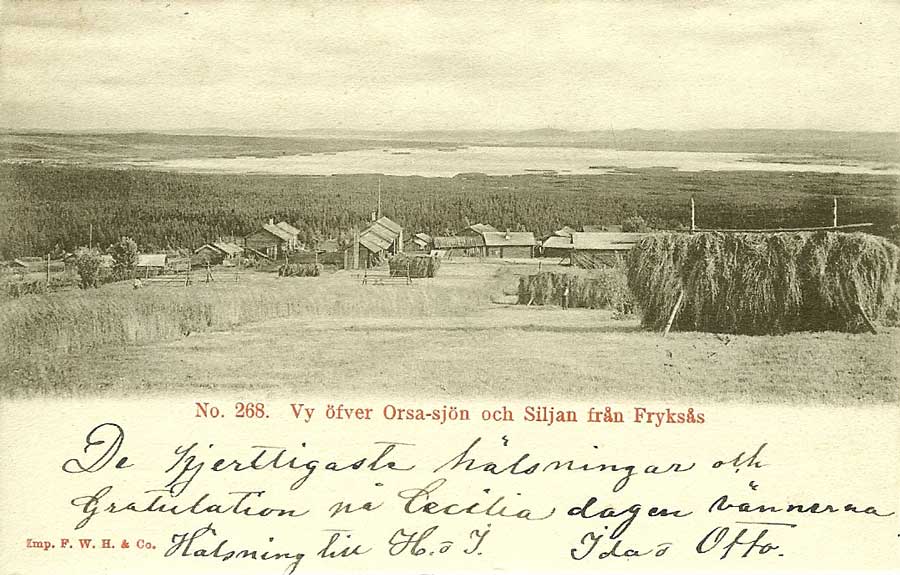 No. 268. Vy öfver Orsa-sjön och Siljan från Fryksås
De hjertligaste hälsningar och
Gratulation på Cecilia dagen vännerna
Imp. F. W. H. & Co. Hälsning till H. o I. Ida o Otto.